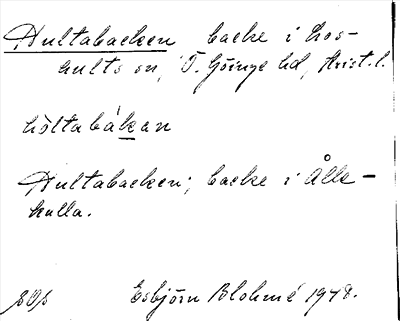 Hultabacken backe i Los-
hults sn, Ö. Göinge hd, Krist. l.
höltabákan
Hultabacken; backe i Ålle-
kulla.
Esbjörn Blohmé 1948.